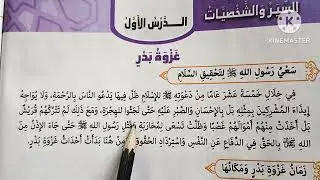 السير والشخصيات
الدَّرْسُ الأَوَّلُ
غَزْوَةُ بَدْرٍ
KINEMASTER
سَعْيُ رَسُولِ اللهِ ﷺ لِتَحْقِيقِ السَّلَامِ
فِي خِلَالِ خَمْسَةَ عَشَرَ عَامًا مِنْ دَعْوَتِهِ ﷺ لِلْإِسْلَامِ ظَلَّ فِيهَا يَدْعُو النَّاسَ بِالرَّحْمَةِ، وَلَا يُوَاجِهُ
إِيذَاءَ الْمُشْرِكِينَ بِمِثْلِهِ بَلْ بِالْإِحْسَانِ وَالصَّبْرِ عَلَيْهِ حَتَّى لَجَئُوا لِلْهِجْرَةِ، وَمَعَ ذَلِكَ لَمْ تَتْرُكْهُمْ قُرَيْشٌ
بَلْ أَخَذَتْ مِنْهُمْ أَمْوَالَهُمْ غَصْبًا وَظَلَّتْ تَسْعَى لِمُحَارَبَةِ وَقَتْلِ رَسُولِ اللهِ ﷺ حَتَّى جَاءَ الْإِذْنُ مِنَ
اللهِ بِالْحَقِّ فِي الدِّفَاعِ عَنِ النَّفْسِ وَاسْتِرْدَادِ الْحُقُوقِ، مِنْ هُنَا بَدَأَتْ أَحْدَاثُ غَزْوَةِ بَدْرٍ.
زَمَانُ غَزْوَةِ بَدْرٍ وَمَكَانُهَا